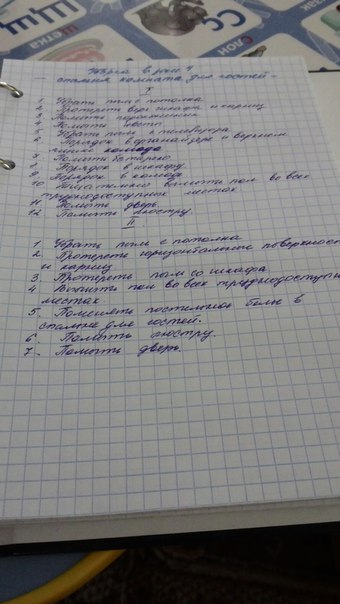 Щщ
Щетка
Сс
Слон
спальня комната для гостей -
I
1. Убрать пыль с потолка
2. Протереть верх шкафа и карниз
3. Помыть подоконник
4. Помыть
5. Убрать пыль с телевизора
6. Порядок в органайзере и верхнем
ящике комода
7. Помыть зеркало
8. Порядок в шкафу
9. Порядок в комоде
10. вымыть пол во всех
труднодоступных местах
11. Помыть дверь.
12. Помыть люстру
II
1. Убрать пыль с потолка
2. Протереть горизонтальные поверхности
и карниз
3. Протереть пыль со шкафа.
4. Вымыть пол во всех труднодоступных
местах
5. Поменять постельное белье в
спальне для гостей.
6. Помыть люстру.
7. Помыть дверь.